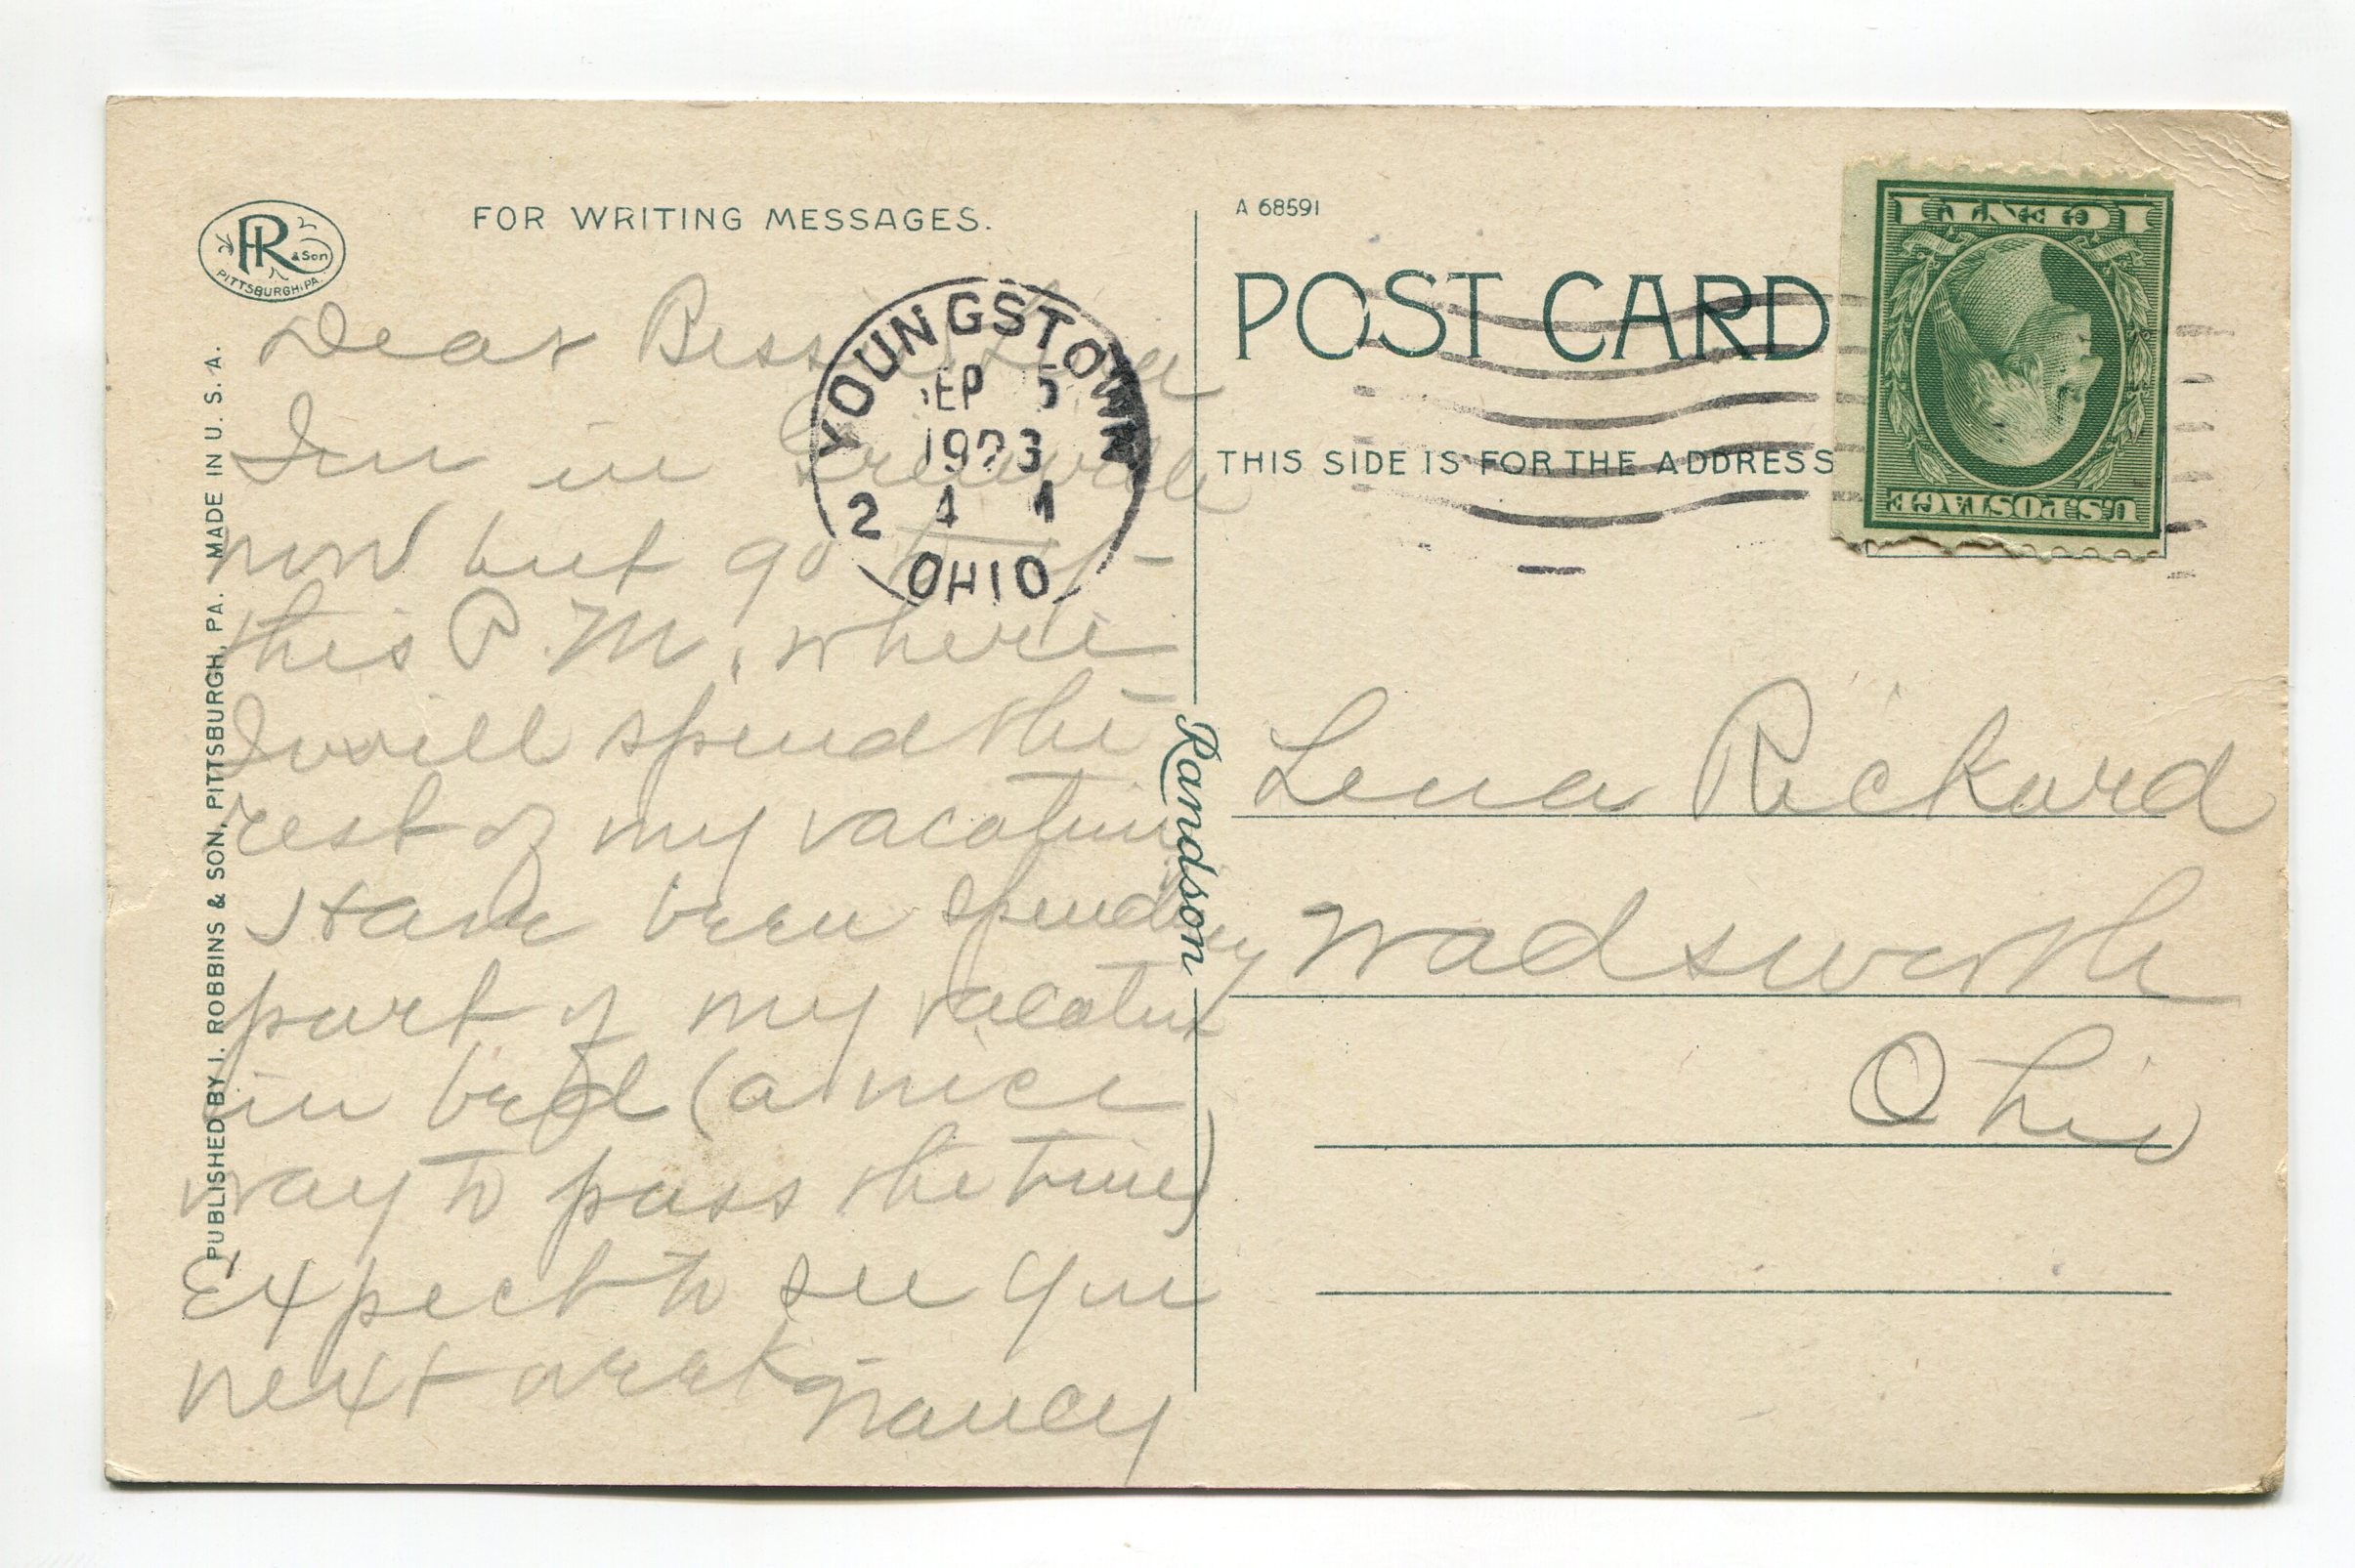 PR & Son
PITTSBURGH, PA.
FOR WRITING MESSAGES.
Dear Bessie & Lena
Im in Greenville
now but go to
this P.M. where
I will spend the
rest of my vacation
Have been spending
part of my vacation
in bed (a nice
way to pass the time)
Expect to see you
next week
Nancy
PUBLISHED BY I. ROBBINS & SON, PITTSBURGH, PA. MADE IN U. S. A.
YOUNGSTOWN
SEP 5
1923
OHIO
Randson
A 68591
POST CARD
THIS SIDE IS FOR THE ADDRESS
1 CENT 1
U.S. POSTAGE
Lena Rickard
Wadsworth
Ohio